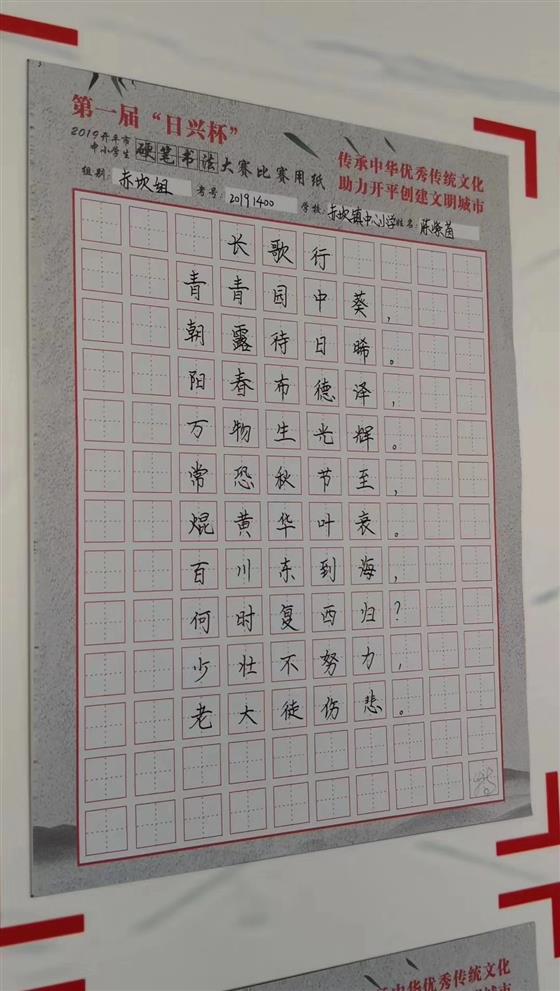 第一届“日兴杯”
2019开平市
中小学生 硬笔书法大赛比赛用纸
传承中华优秀传统文化
助力开平创建文明城市
组别: 赤坎组 考号: 20191400 学校: 赤坎镇中心小学 姓名:
长歌行
青青园中葵，
朝露待日晞。
阳春布德泽，
万物生光辉。
常恐秋节至，
焜黄华叶衰。
百川东到海，
何时复西归？
少壮不努力，
老大徒伤悲。
承中华优秀传统文化